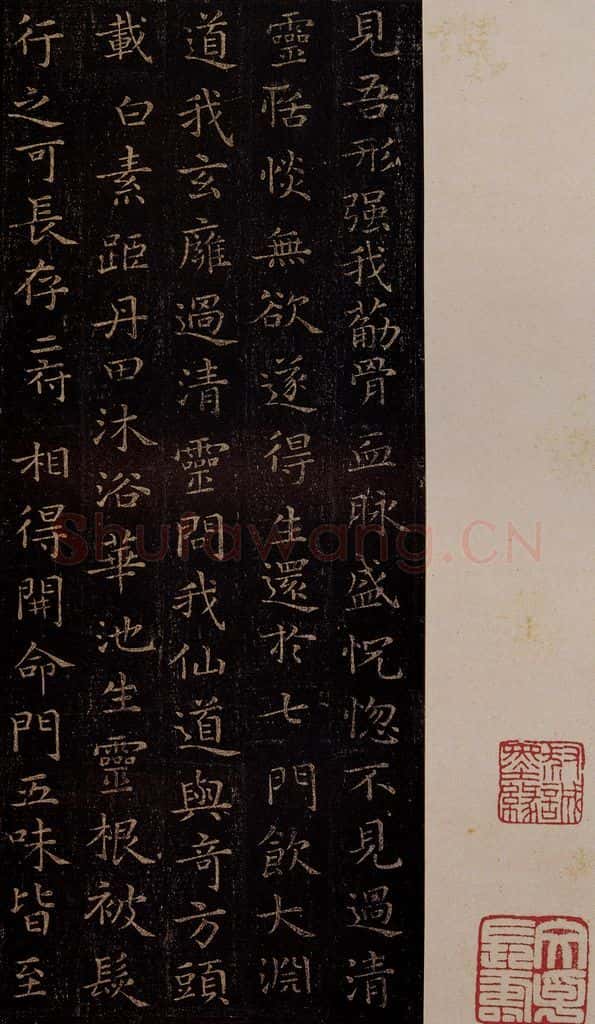 見吾形强我葪骨血脉盛恍惚不見過清
靈恬惔無欲遂得生還於七門飲大淵
道我玄廱過清靈問我仙道與奇方頭
載白素距丹田沐浴華池生靈根被髮
行之可長存二府相得開命門五味皆至
Shufawang.CN